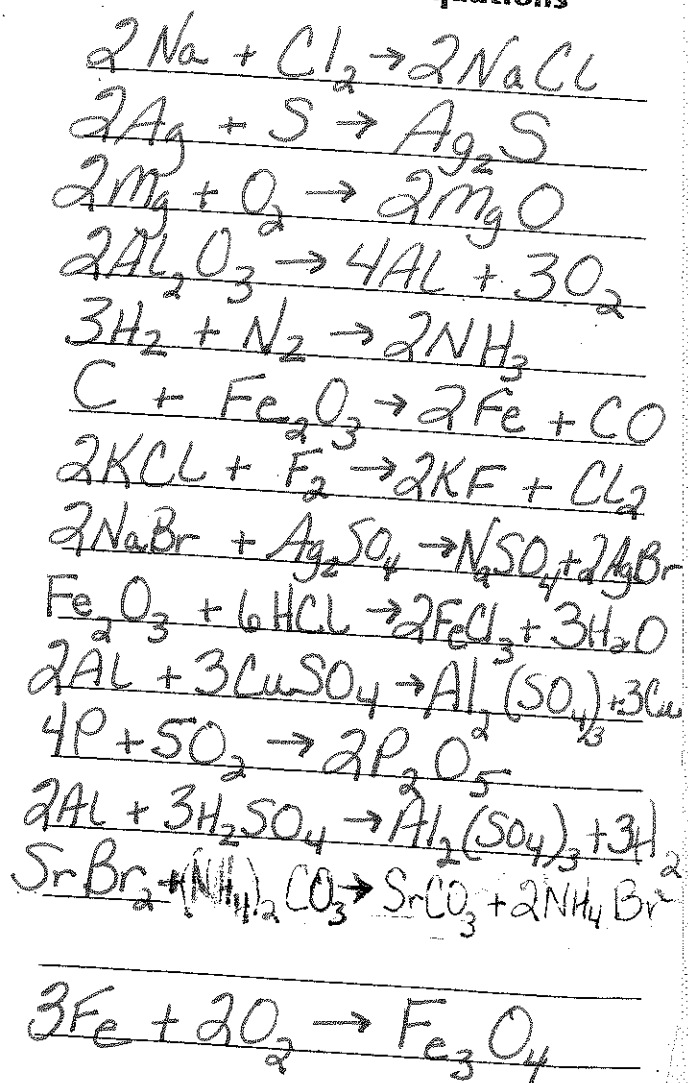 quations
2Na + Cl₂ → 2NaCl
2Ag + S → Ag₂S
2Mg + O₂ → 2MgO
2AL₂O₃ → 4AL + 3O₂
3H₂ + N₂ → 2NH₃
C + Fe₂O₃ → 2Fe + CO
2KCL + F₂ → 2KF + CL₂
2NaBr + Ag₂SO₄ → NaSO₄ + 2AgBr
Fe₂O₃ + 6HCl → 2FeCl₃ + 3H₂O
2AL + 3CuSO₄ → Al₂(SO₄)₃ + 3Cu
4P + 5O₂ → 2P₂O₅
2AL + 3H₂SO₄ → Al₂(SO₄)₃ + 3H₂
SrBr₂ + (NH₄)₂CO₃ → SrCO₃ + 2NH₄Br
3Fe + 2O₂ → Fe₃O₄